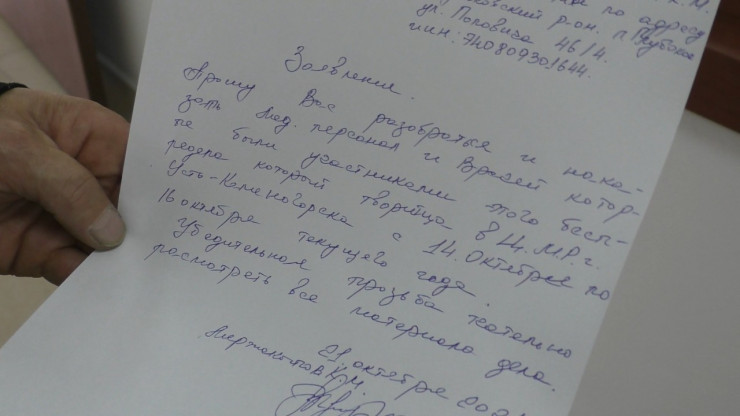 К.М.
по адресу
р-он. п. Глубокое
ул. Поповича 46/4.
ИИН: 740809301644.
Заявление.
Прошу Вас разобраться и нака-
зать мед. персонал и врачей котор-
ые были участниками этого беспре-
редела который творится в Ц.М.Р г.
Усть-Каменогорска с 14. Октября по
16 октября текущего года.
Убедительная прозьба тсательно
расмотреть все материала дела.
21 октября 202
К.М.